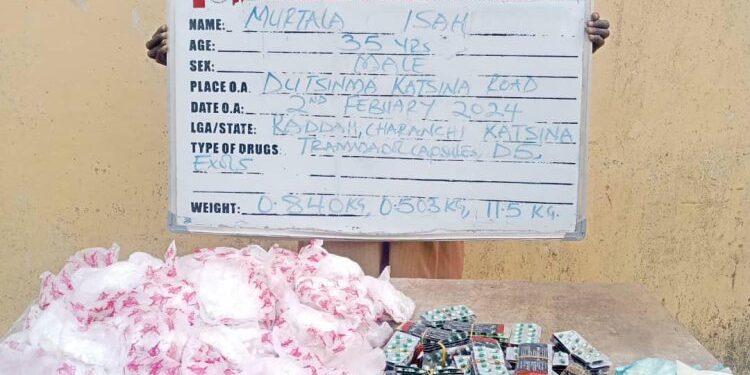 NAME: MURTALA ISAH
AGE: 35 YRS
SEX: MALE
PLACE O.A: DUTSINMA KATSINA ROAD
DATE O.A: 2ND FEBUARY 2024
LGA/STATE: KADDAH, CHARANCHI KATSINA
TYPE OF DRUGS: TRAMADADR CAPSULES, D5,
EXOL5
WEIGHT: 0.840KG, 0.503KG, 11.5 KG.